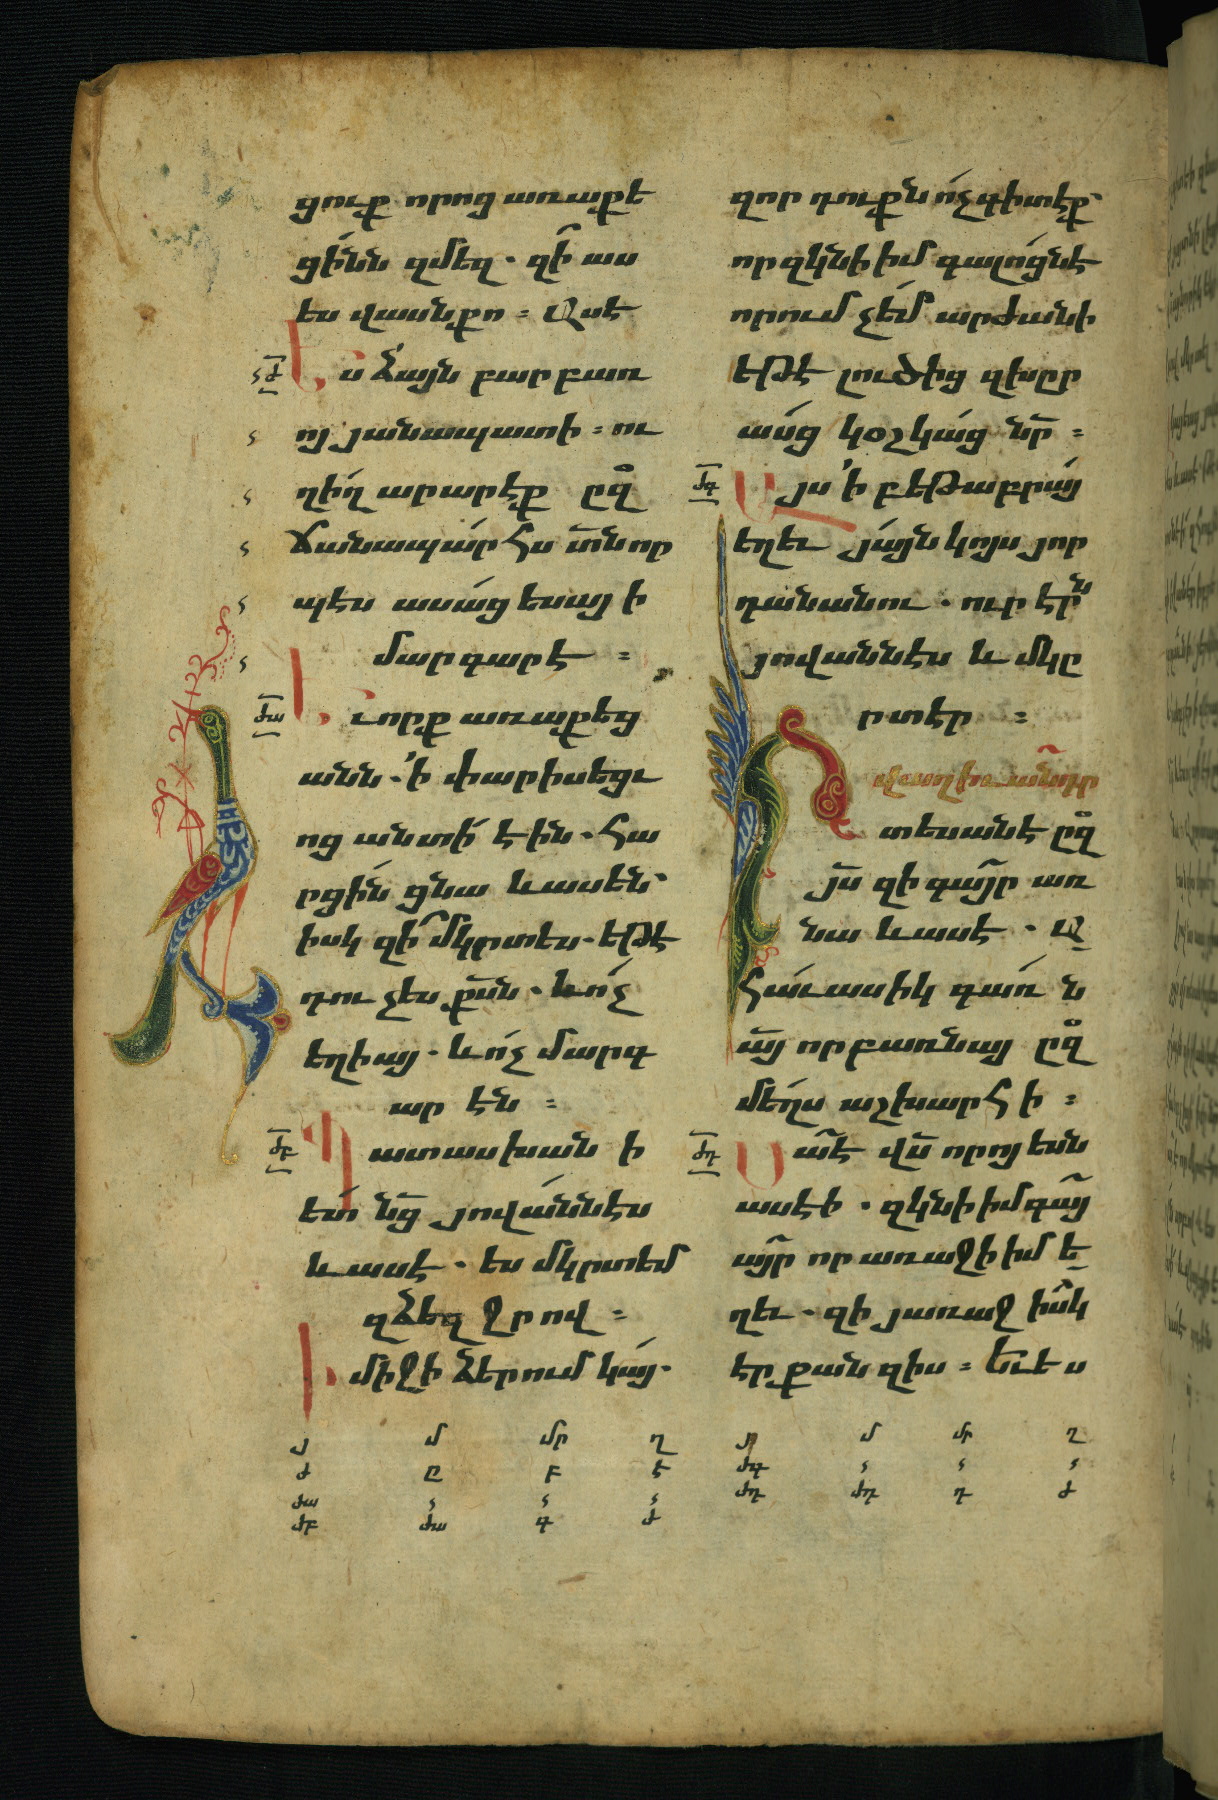 ցուք որոց առաքե
ցինն զմեզ. զի՞ աս
ես վասն քո։ Ասէ
ժ Ես ձայն բարբառ
ոյ յանապատի։ ու
ղիղ արարէք ըզ
ճանապարհս տն որ
պէս ասաց եսայի
մարգարէ։
ժա Եւ որք առաքեց
անն. ՚ի փարիսեցւ
ոց անտի էին. հա
րցին ցնա և ասեն.
իսկ զի՞ մկրտես. եթէ
դու չես քսն. և ոչ
եղիայ. և ոչ մարգ
արէն։
ժբ Պատասխանի
ետ նց յովաննէս
և ասէ. ես մկրտեմ
զձեզ ջրով։
Ի միջի ձերում կայ.
զոր դուքն ոչ գիտէք
որ զկնի իմ գալոցն է
որում չեմ արժանի
եթէ լուծից զխըր
ացս կօշկաց նր։
ժգ Այս ՚ի բեթաբրայ
եղեւ յայն կոյս յոր
դանանու. ուր էրն
յովաննէս և մկը
րտէր։
տեսանէ ըզ
յս զի գայր առ
նա և ասէ. Ա
հաւասիկ գառն
այ որ բառնայ ըզ
մեղս աշխարհի։
ժդ Սա է վս որոյ եսն
ասէի. զկնի իմ գայ
այր որ առաջի իմ ե
ղեւ. զի յառաջ իսկ
էր քան զիս։ Եւ ես
յ մ մր ղ
ժ ը բ է
ժա
ժբ ժա գ ժ
յ մ մր ղ
ժգ
ժդ ժդ դ ժ